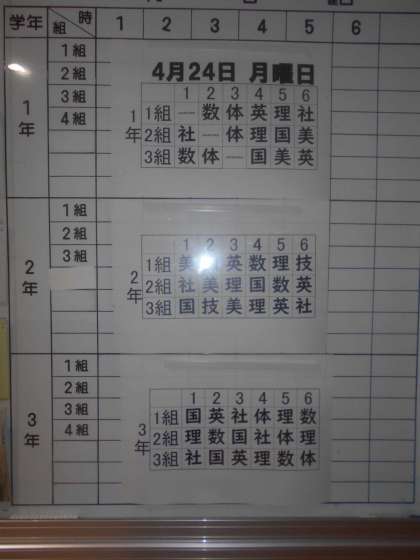 学年 組 時 1 2 3 4 5 6
1年
1組
2組
3組
4組
4月24日 月曜日
1 2 3 4 5 6
1年
1組 一 数 体 英 理 社
2組 社 一 体 理 国 美
3組 数 体 一 国 美 英
2年
1組
2組
3組
1 2 3 4 5 6
2年
1組 美 英 数 理 技
2組 社 美 理 国 数 英
3組 国 技 美 理 英 社
3年
1組
2組
3組
4組
1 2 3 4 5 6
3年
1組 国 英 社 体 理 数
2組 理 数 国 社 体 理
3組 社 国 英 理 数 体